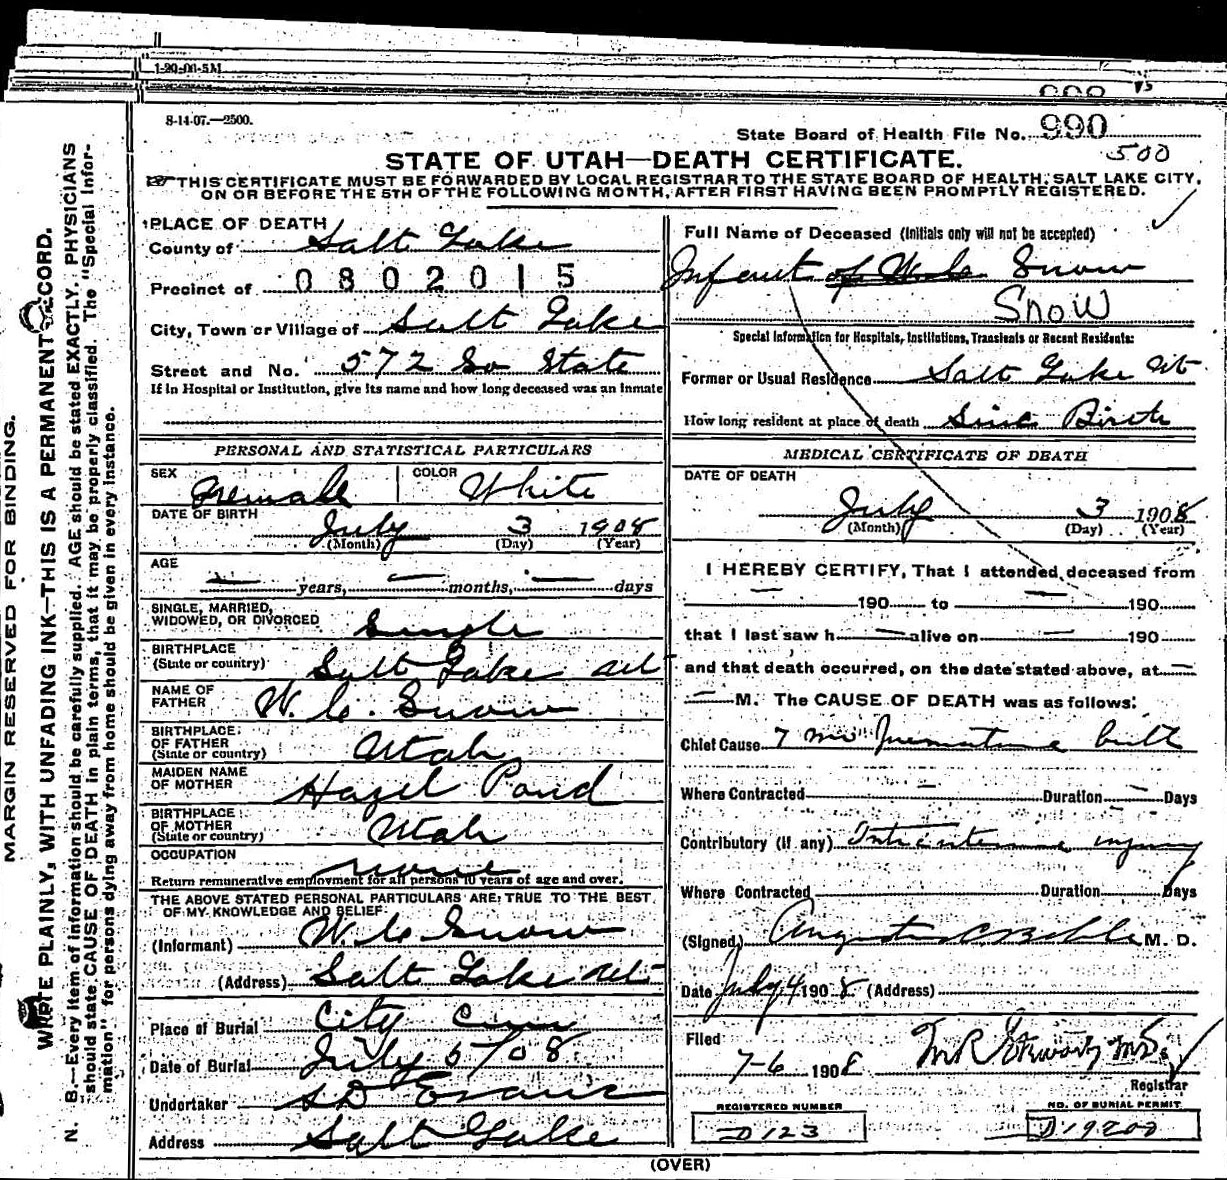 1-29-06-5M
8-14-07.—2500.
State Board of Health File No. 990
500
STATE OF UTAH—DEATH CERTIFICATE.
THIS CERTIFICATE MUST BE FORWARDED BY LOCAL REGISTRAR TO THE STATE BOARD OF HEALTH, SALT LAKE CITY,
ON OR BEFORE THE 5TH OF THE FOLLOWING MONTH, AFTER FIRST HAVING BEEN PROMPTLY REGISTERED.
MARGIN RESERVED FOR BINDING.
WRITE PLAINLY, WITH UNFADING INK—THIS IS A PERMANENT RECORD.
N. B.—Every item of information should be carefully supplied. AGE should be stated EXACTLY. PHYSICIANS
should state CAUSE OF DEATH in plain terms, that it may be properly classified. The "Special Infor-
mation" for persons dying away from home should be given in every instance.
PLACE OF DEATH
County of Salt Lake
Precinct of 0802015
City, Town or Village of Salt Lake
Street and No. 572 So State
If in Hospital or Institution, give its name and how long deceased was an inmate
PERSONAL AND STATISTICAL PARTICULARS
SEX Female COLOR White
DATE OF BIRTH July 3 1908
(Month) (Day) (Year)
AGE
— years, — months, — days
SINGLE, MARRIED,
WIDOWED, OR DIVORCED Single
BIRTHPLACE
(State or country) Salt Lake Ut
NAME OF
FATHER W. C. Snow
BIRTHPLACE
OF FATHER
(State or country) Utah
MAIDEN NAME
OF MOTHER Hazel Pond
BIRTHPLACE
OF MOTHER
(State or country) Utah
OCCUPATION None
Return remunerative employment for all persons 10 years of age and over.
THE ABOVE STATED PERSONAL PARTICULARS ARE TRUE TO THE BEST
OF MY KNOWLEDGE AND BELIEF
(Informant) W. C. Snow
(Address) Salt Lake Ut
Place of Burial City Cem
Date of Burial July 5/08
Undertaker S D Evans
Address Salt Lake
Full Name of Deceased (Initials only will not be accepted)
Infant of Snow
Snow
Special Information for Hospitals, Institutions, Transients or Recent Residents:
Former or Usual Residence Salt Lake Ut
How long resident at place of death Sinc Birth
MEDICAL CERTIFICATE OF DEATH
DATE OF DEATH
July 3 1908
(Month) (Day) (Year)
I HEREBY CERTIFY, That I attended deceased from
— 190 to — 190
that I last saw h — alive on — 190
and that death occurred, on the date stated above, at —
— M. The CAUSE OF DEATH was as follows:
Chief Cause 7 mo Premature birth
Where Contracted — Duration — Days
Contributory (if any) injury
Where Contracted Duration Days
(Signed) M. D.
Date July 4 1908 (Address)
Filed
7-6 1908 M R Stewart MD
Registrar
REGISTERED NUMBER
D 123
NO. OF BURIAL PERMIT
D 19200
(OVER)